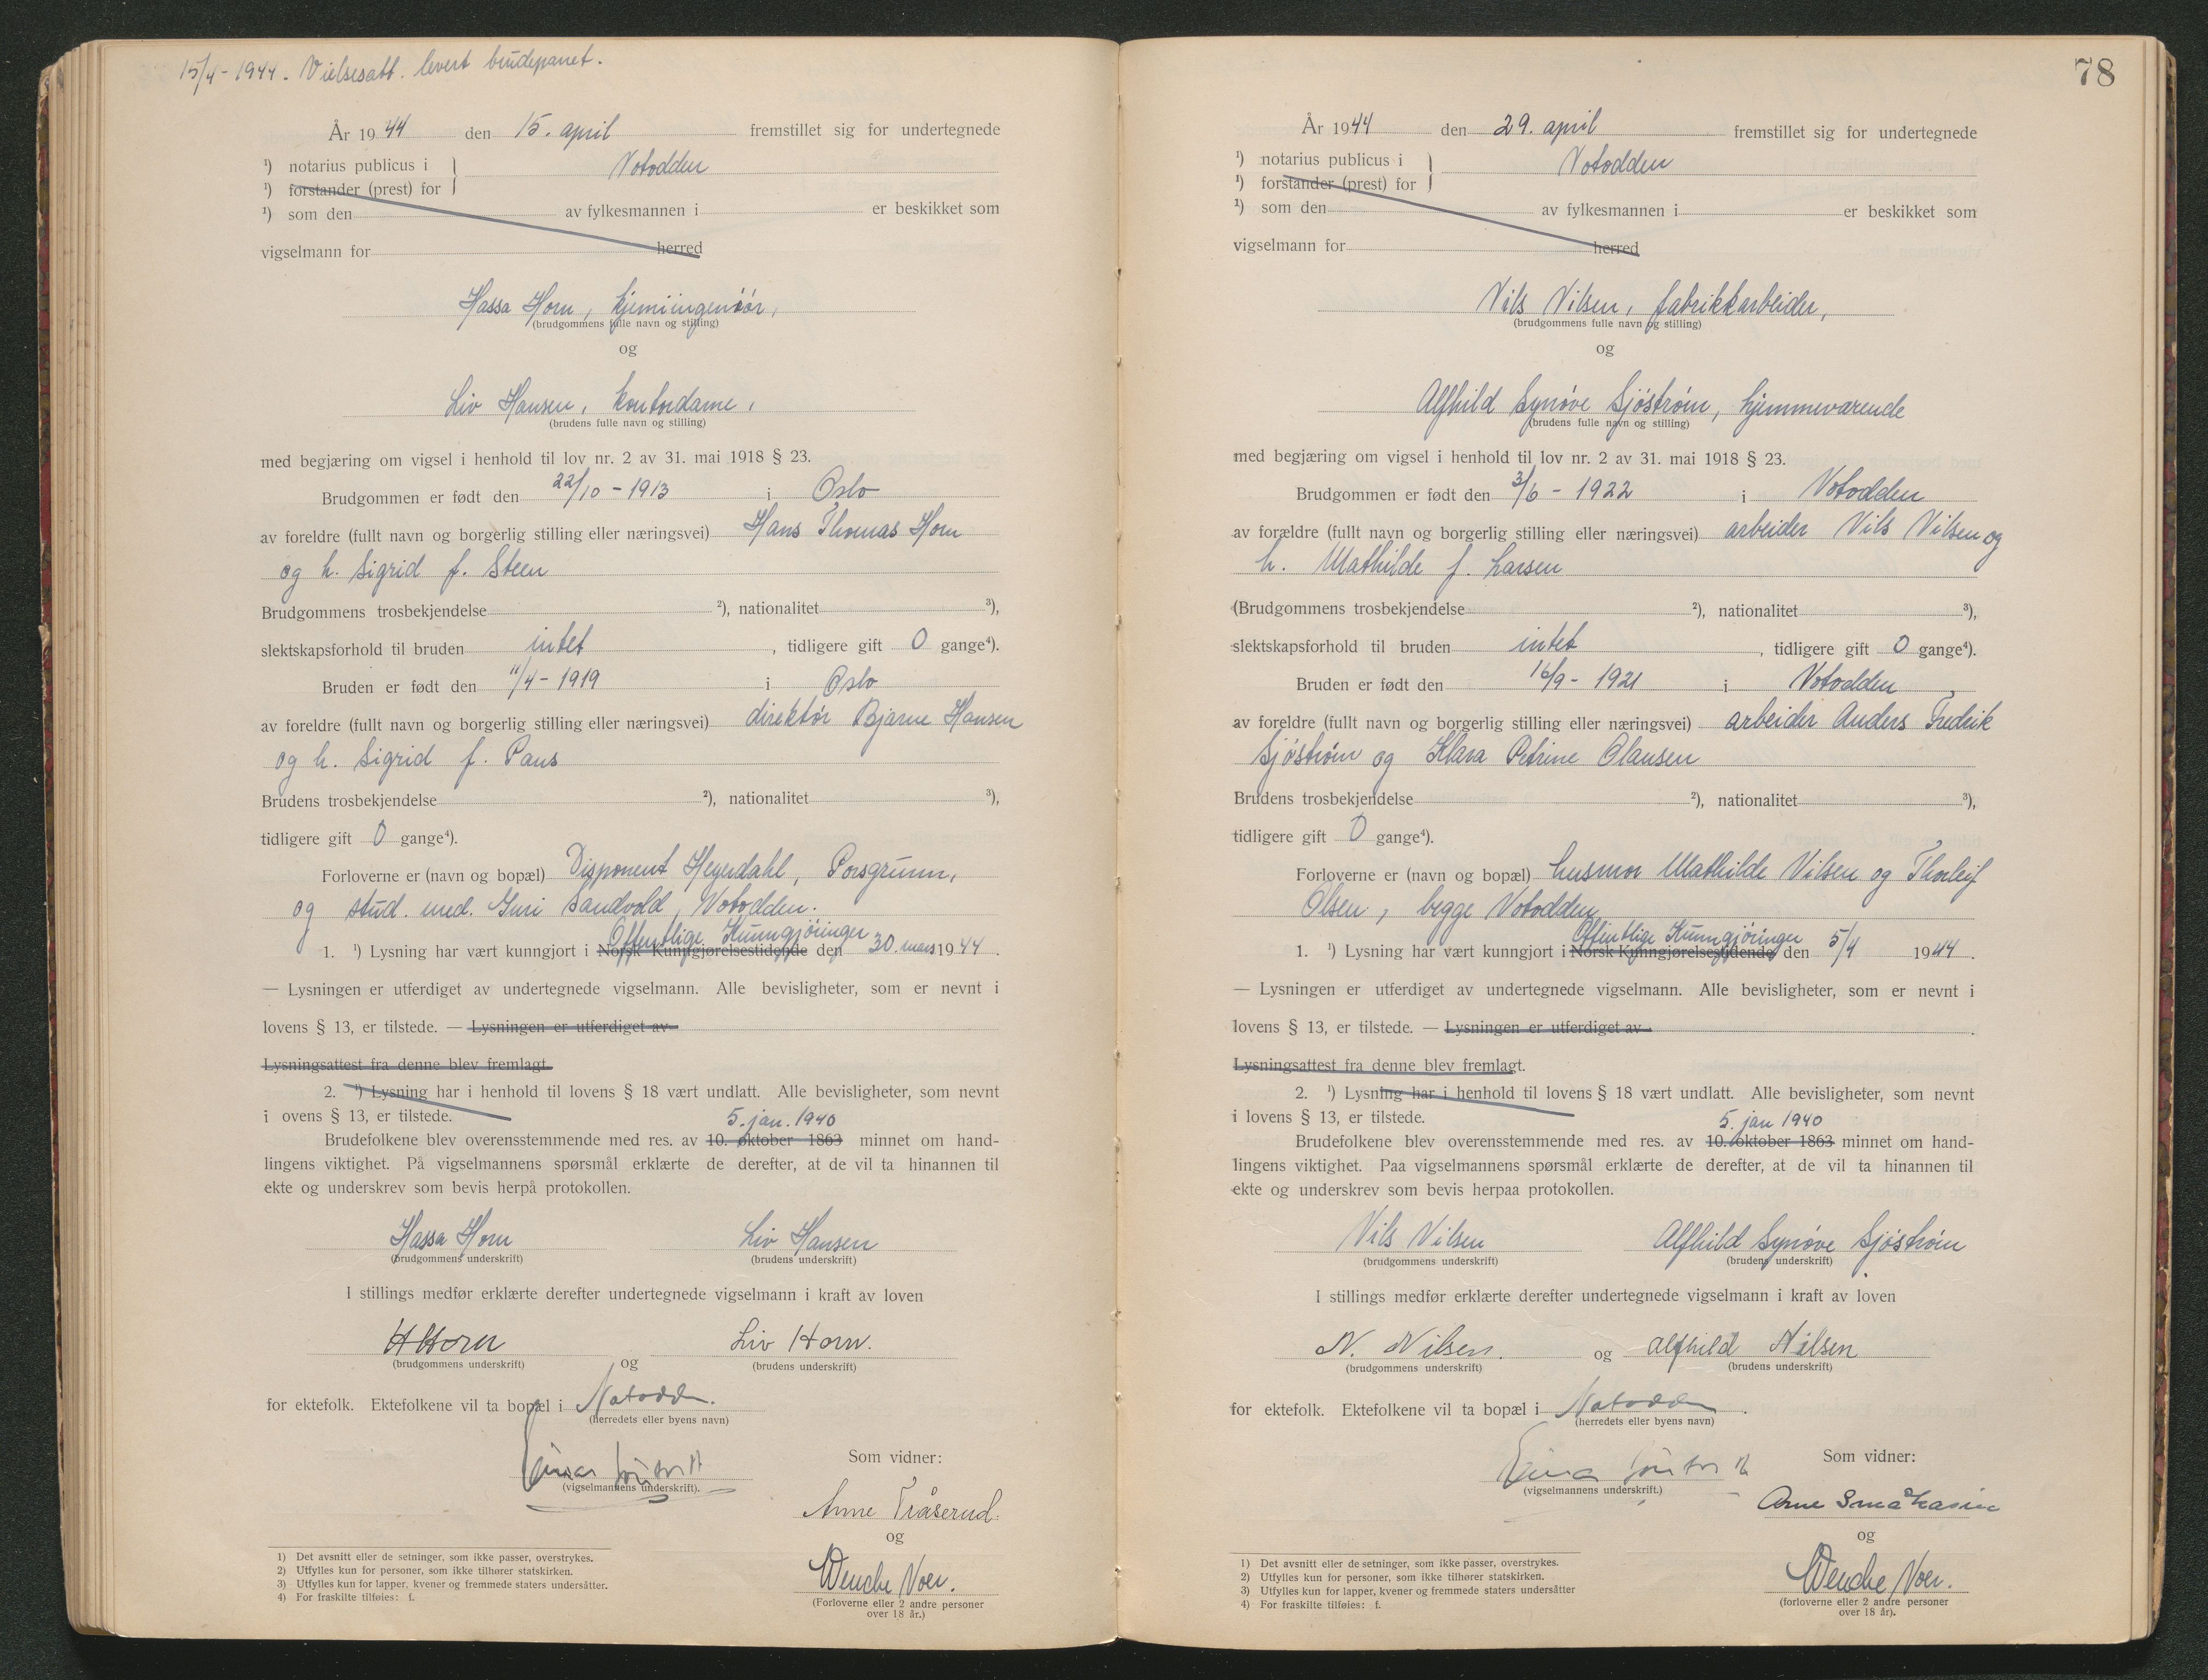 15/4 - 1944. Vielsesatt. levert brudeparret.
År 1944 den 15. april fremstillet sig for undertegnede
¹) notarius publicus i } Notodden
¹) forstander (prest) for
¹) som den av fylkesmannen i er beskikket som
vigselmann for herred
Hassa Horn, kjemiingeniør,
(brudgommens fulle navn og stilling)
og
Liv Hansen, kontordame,
(brudens fulle navn og stilling)
med begjæring om vigsel i henhold til lov nr. 2 av 31. mai 1918 § 23.
Brudgommen er født den 22/10 - 1913 i Oslo
av foreldre (fullt navn og borgerlig stilling eller næringsvei) Hans Thomas Horn
og h. Sigrid f. Steen
Brudgommens trosbekjendelse ²), nationalitet ³),
slektskapsforhold til bruden intet , tidligere gift 0 gange⁴).
Bruden er født den 11/4 - 1919 i Oslo
av foreldre (fullt navn og borgerlig stilling eller næringsvei) direktør Bjarne Hansen
og h. Sigrid f. Paus
Brudens trosbekjendelse ²), nationalitet ³),
tidligere gift 0 gange⁴).
Forloverne er (navn og bopæl) Disponent Heyerdahl, Porsgrunn,
og stud. med. Guri Sandvold, Notodden.
Offentlige Kunngjøringer
1. ¹) Lysning har vært kunngjort i Norsk Kunngjørelsestidende den 30. mars 1944.
— Lysningen er utferdiget av undertegnede vigselmann. Alle bevisligheter, som er nevnt i
lovens § 13, er tilstede. — Lysningen er utferdiget av
Lysningsattest fra denne blev fremlagt.
2. ¹) Lysning har i henhold til lovens § 18 vært undlatt. Alle bevisligheter, som nevnt
i ovens § 13, er tilstede.
5. jan. 1940
Brudefolkene blev overensstemmende med res. av 10. oktober 1863 minnet om hand-
lingens viktighet. På vigselmannens spørsmål erklærte de derefter, at de vil ta hinannen til
ekte og underskrev som bevis herpå protokollen.
Hassa Horn Liv Hansen
(brudgommens underskrift) (brudens underskrift)
I stillings medfør erklærte derefter undertegnede vigselmann i kraft av loven
H Horn og Liv Horn.
(brudgommens underskrift) (brudens underskrift)
for ektefolk. Ektefolkene vil ta bopæl i Notodden.
(herredets eller byens navn)
Einar
(vigselmannens underskrift).
Som vidner:
Anne Tråserud.
og
Wenche Noer.
(Forloverne eller 2 andre personer
over 18 år.)
1) Det avsnitt eller de setninger, som ikke passer, overstrykes.
2) Utfylles kun for personer, som ikke tilhører statskirken.
3) Utfylles kun for lapper, kvener og fremmede staters undersåtter.
4) For fraskilte tilføies: f.
78
År 1944 den 29. april fremstillet sig for undertegnede
¹) notarius publicus i } Notodden
¹) forstander (prest) for
¹) som den av fylkesmannen i er beskikket som
vigselmann for herred
Nils Nilsen, fabrikkarbeider,
(brudgommens fulle navn og stilling)
og
Alfhild Synøve Sjøstrøm, hjemmeværende
(brudens fulle navn og stilling)
med begjæring om vigsel i henhold til lov nr. 2 av 31. mai 1918 § 23.
Brudgommen er født den 3/6 - 1922 i Notodden
av forældre (fullt navn og borgerlig stilling eller næringsvei) arbeider Nils Nilsen og
h. Mathilde f. Larsen
(Brudgommens trosbekjendelse ²), nationalitet ³),
slektskapsforhold til bruden intet , tidligere gift 0 gange⁴).
Bruden er født den 16/9 - 1921 i Notodden
av foreldre (fullt navn og borgerlig stilling eller næringsvei) arbeider Anders Fredrik
Sjøstrøm og Klara Petrine Olausen
Brudens trosbekjendelse ²), nationalitet ³),
tidligere gift 0 gange⁴).
Forloverne er (navn og bopæl) husmor Mathilde Nilsen og Thorleif
Olsen, begge Notodden
Offentlige Kunngjøringer
1. ¹) Lysning har vært kunngjort i Norsk Kunngjørelsestidende den 5/4 1944.
— Lysningen er utferdiget av undertegnede vigselmann. Alle bevisligheter, som er nevnt i
lovens § 13, er tilstede. — Lysningen er utferdiget av .
Lysningsattest fra denne blev fremlagt.
2. ¹) Lysning har i henhold til lovens § 18 vært undlatt. Alle bevisligheter, som nevnt
i lovens § 13, er tilstede.
5. jan 1940
Brudefolkene blev overensstemmende med res. av 10. oktober 1863 minnet om hand-
lingens viktighet. Paa vigselmannens spørsmål erklærte de derefter, at de vil ta hinannen til
ekte og underskrev som bevis herpaa protokollen.
Nils Nilsen Alfhild Synøve Sjøstrøm
(brudgommens underskrift) (brudens underskrift)
I stillings medfør erklærte derefter undertegnede vigselmann i kraft av loven
N. Nilsen. og Alfhild Nilsen
(brudgommens underskrift) (brudens underskrift)
for ektefolk. Ektefolkene vil ta bopæl i Notodden.
(herredets eller byens navn)
Einar
(vigselmannens underskrift.)
Som vidner:
Arne
og
Wenche Noer.
(forloverne eller 2 andre personer
over 18 år).
1) Det avsnitt eller de setninger, som ikke passer, overstrykes.
2) Utfylles kun for personer, som ikke tilhører statskirken.
3) Utfylles kun for lapper, kvener og fremmede staters undersåtter
4) For fraskilte tilføies: f.